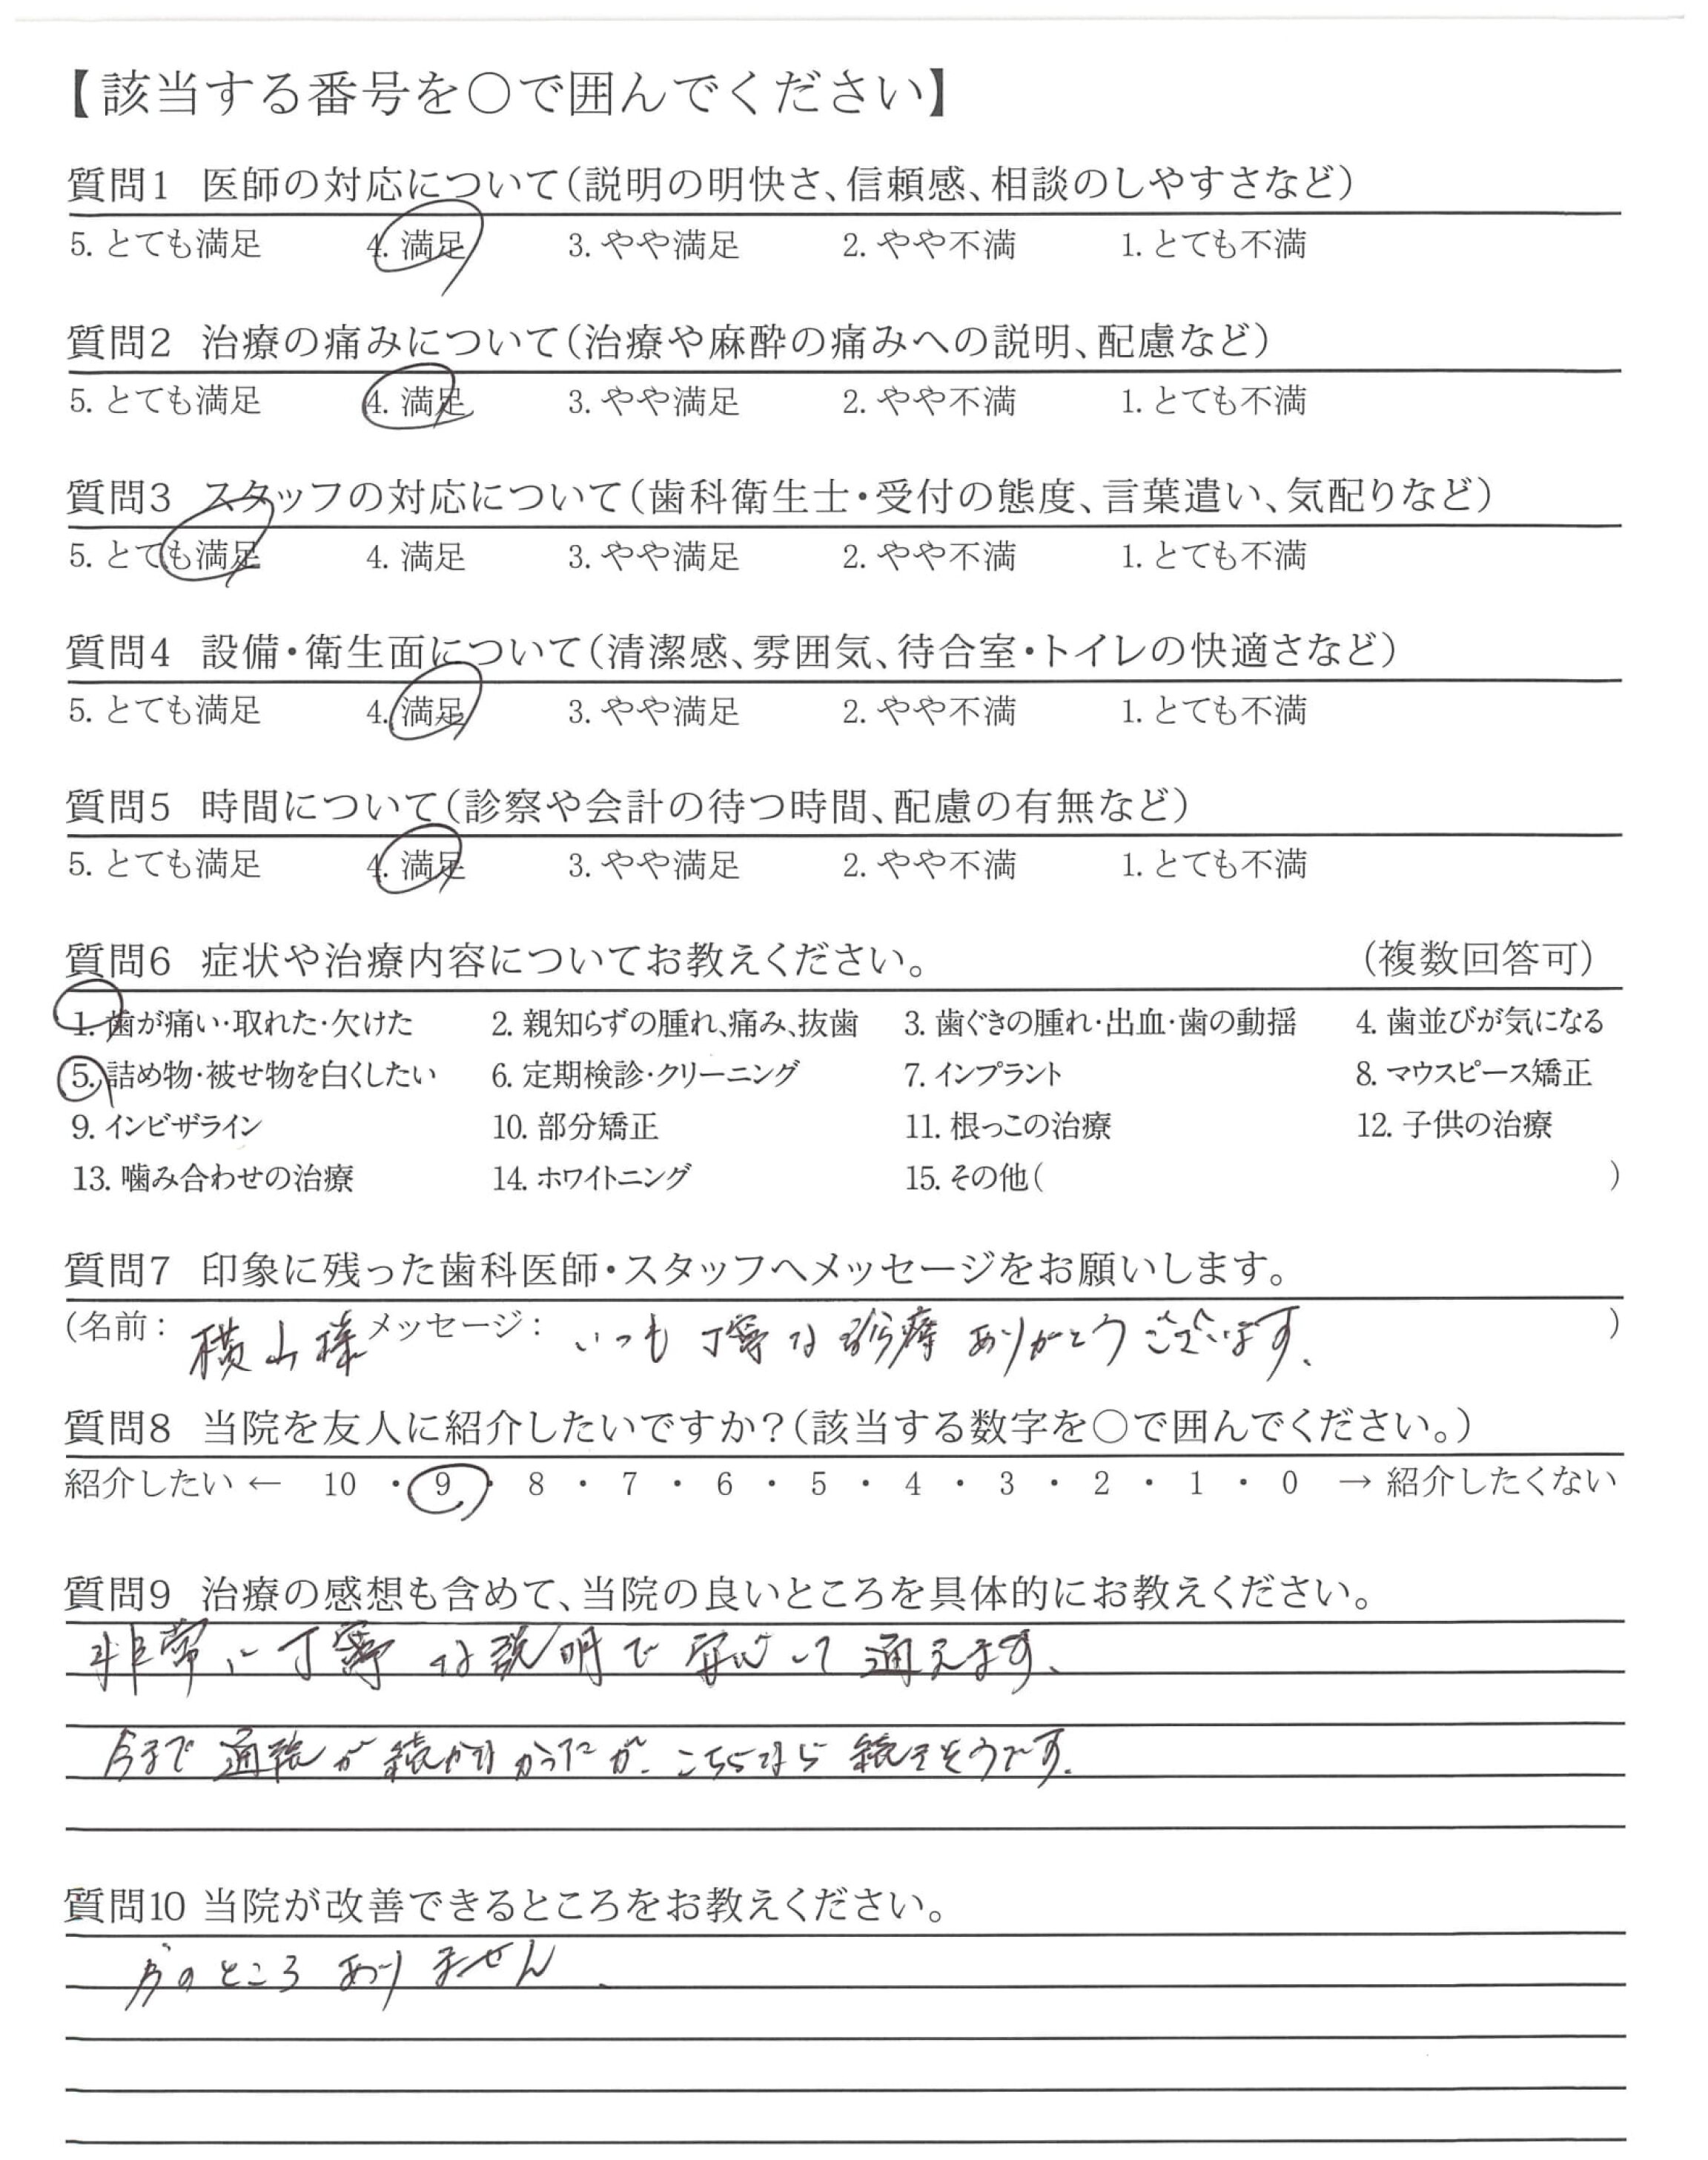 【該当する番号を○で囲んでください】
質問1 医師の対応について（説明の明快さ、信頼感、相談のしやすさなど）
5. とても満足 4. 満足 3. やや満足 2. やや不満 1. とても不満
質問2 治療の痛みについて（治療や麻酔の痛みへの説明、配慮など）
5. とても満足 4. 満足 3. やや満足 2. やや不満 1. とても不満
質問3 スタッフの対応について（歯科衛生士・受付の態度、言葉遣い、気配りなど）
5. とても満足 4. 満足 3. やや満足 2. やや不満 1. とても不満
質問4 設備・衛生面について（清潔感、雰囲気、待合室・トイレの快適さなど）
5. とても満足 4. 満足 3. やや満足 2. やや不満 1. とても不満
質問5 時間について（診察や会計の待つ時間、配慮の有無など）
5. とても満足 4. 満足 3. やや満足 2. やや不満 1. とても不満
質問6 症状や治療内容についてお教えください。 （複数回答可）
1. 歯が痛い・取れた・欠けた 2. 親知らずの腫れ、痛み、抜歯 3. 歯ぐきの腫れ・出血・歯の動揺 4. 歯並びが気になる
5. 詰め物・被せ物を白くしたい 6. 定期検診・クリーニング 7. インプラント 8. マウスピース矯正
9. インビザライン 10. 部分矯正 11. 根っこの治療 12. 子供の治療
13. 噛み合わせの治療 14. ホワイトニング 15. その他（ ）
質問7 印象に残った歯科医師・スタッフへメッセージをお願いします。
（名前： 横山様 メッセージ： いつも丁寧な診療ありがとうございます. ）
質問8 当院を友人に紹介したいですか？（該当する数字を○で囲んでください。）
紹介したい ← 10 ・ 9 ・ 8 ・ 7 ・ 6 ・ 5 ・ 4 ・ 3 ・ 2 ・ 1 ・ 0 → 紹介したくない
質問9 治療の感想も含めて、当院の良いところを具体的にお教えください。
非常に丁寧な説明で安心して通えます、
今まで通院が続かなかったが、こちらなら続きそうです.
質問10 当院が改善できるところをお教えください。
のところありません.